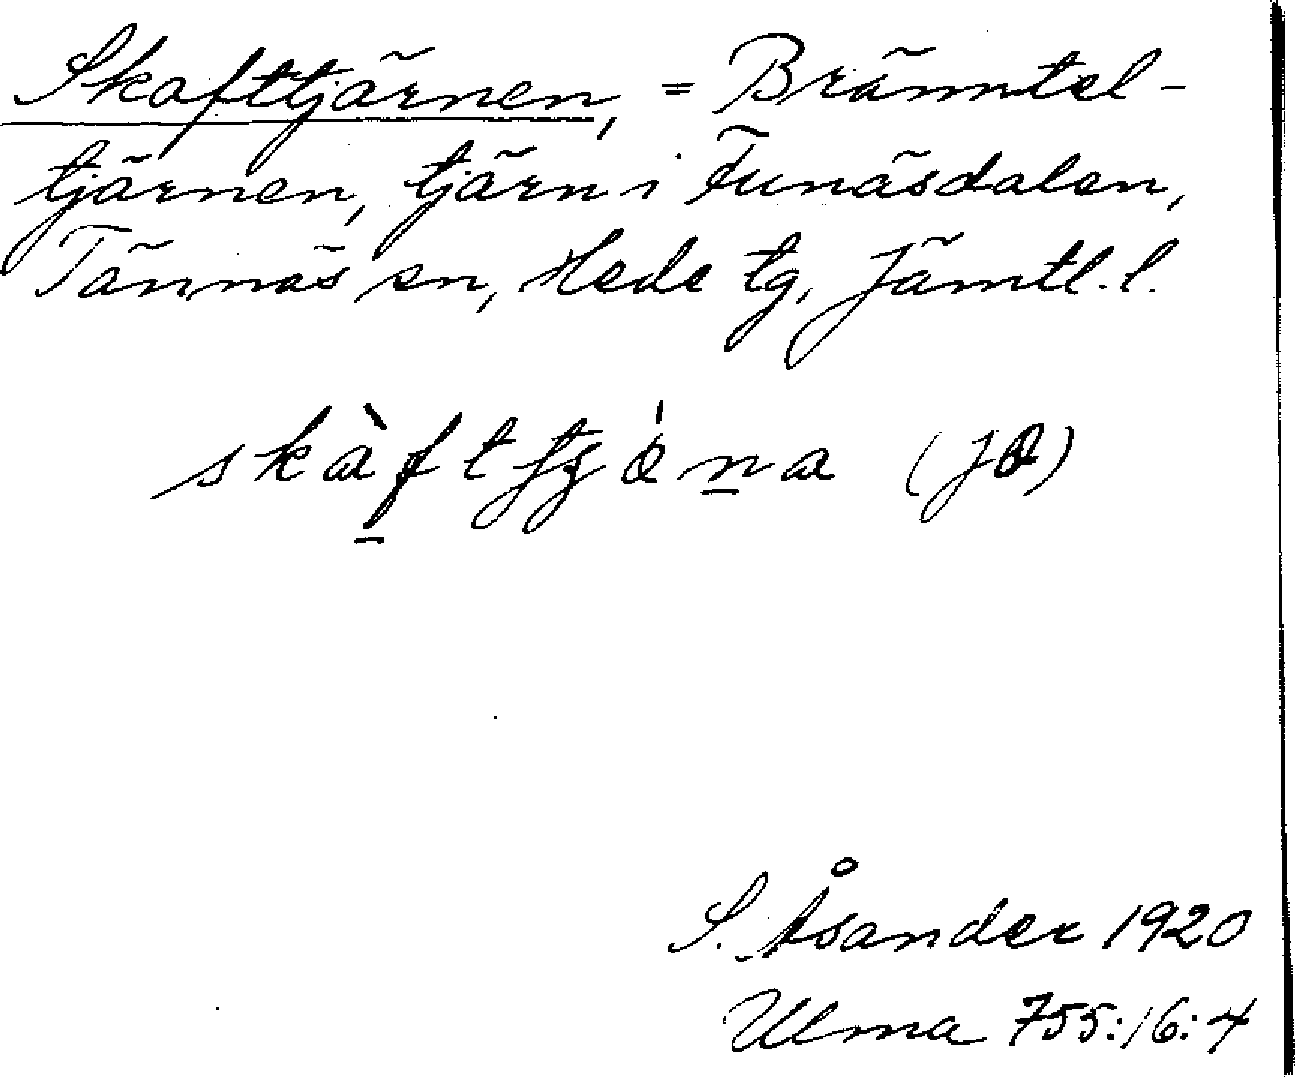 Skafttjärnen, = Bränntel-
tjärnen, tjärn i Funäsdalen,
Tännäs sn, Hede tg, Jämtl. l.
(JÖ)
S. Åsander 1920
Ulma 755:16:4